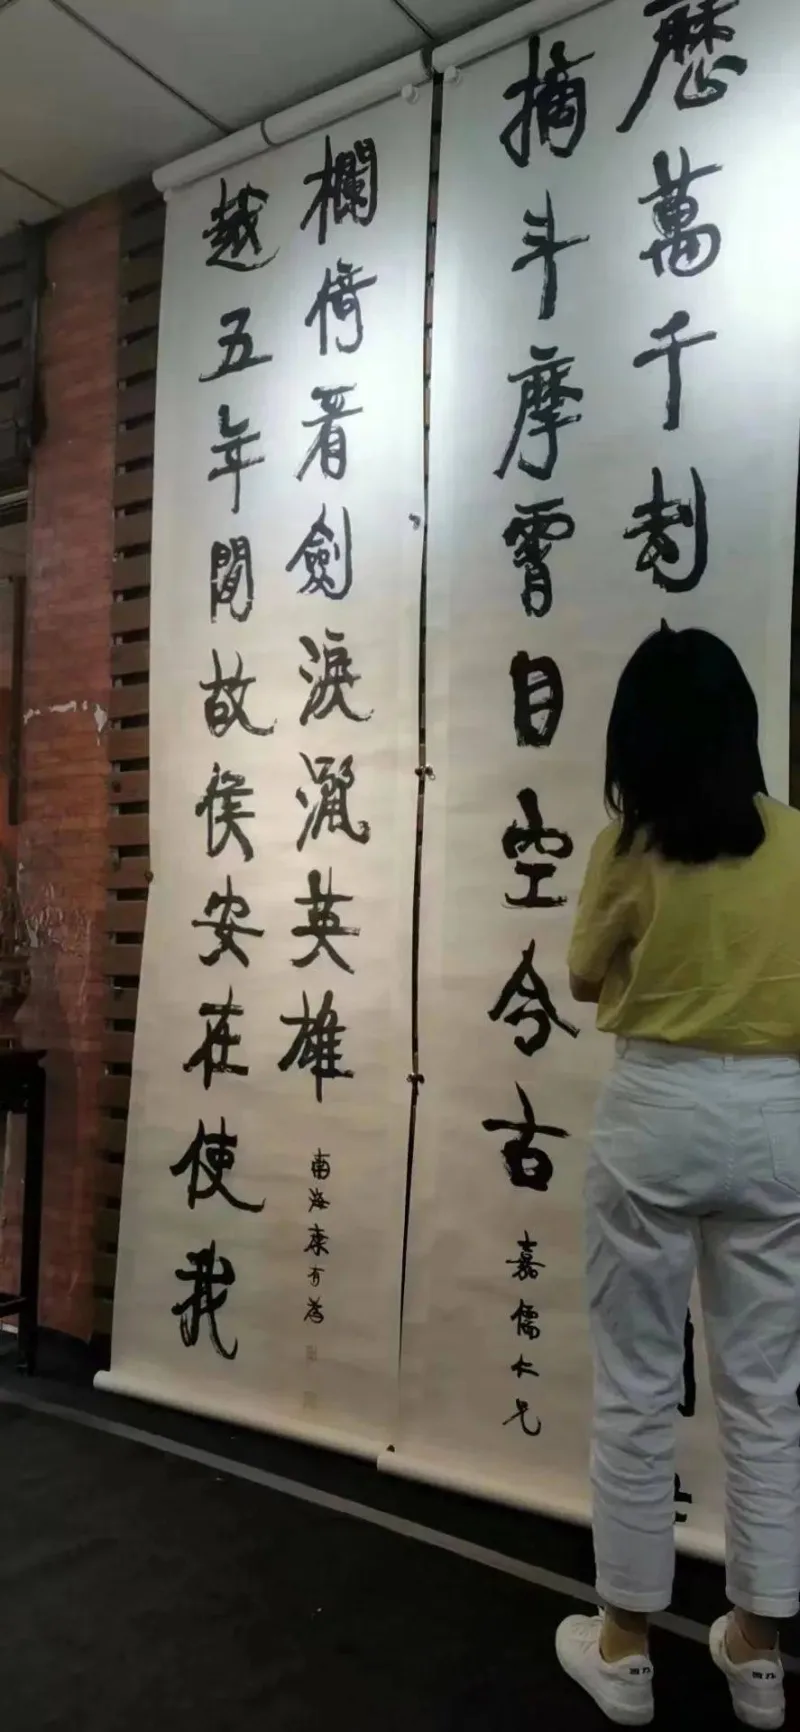 歷萬千劫
摘斗摩霄目空今古
嘉儒仁兄
越五年間故侯安在使我
欄倚看劍淚灑英雄
南海康有為